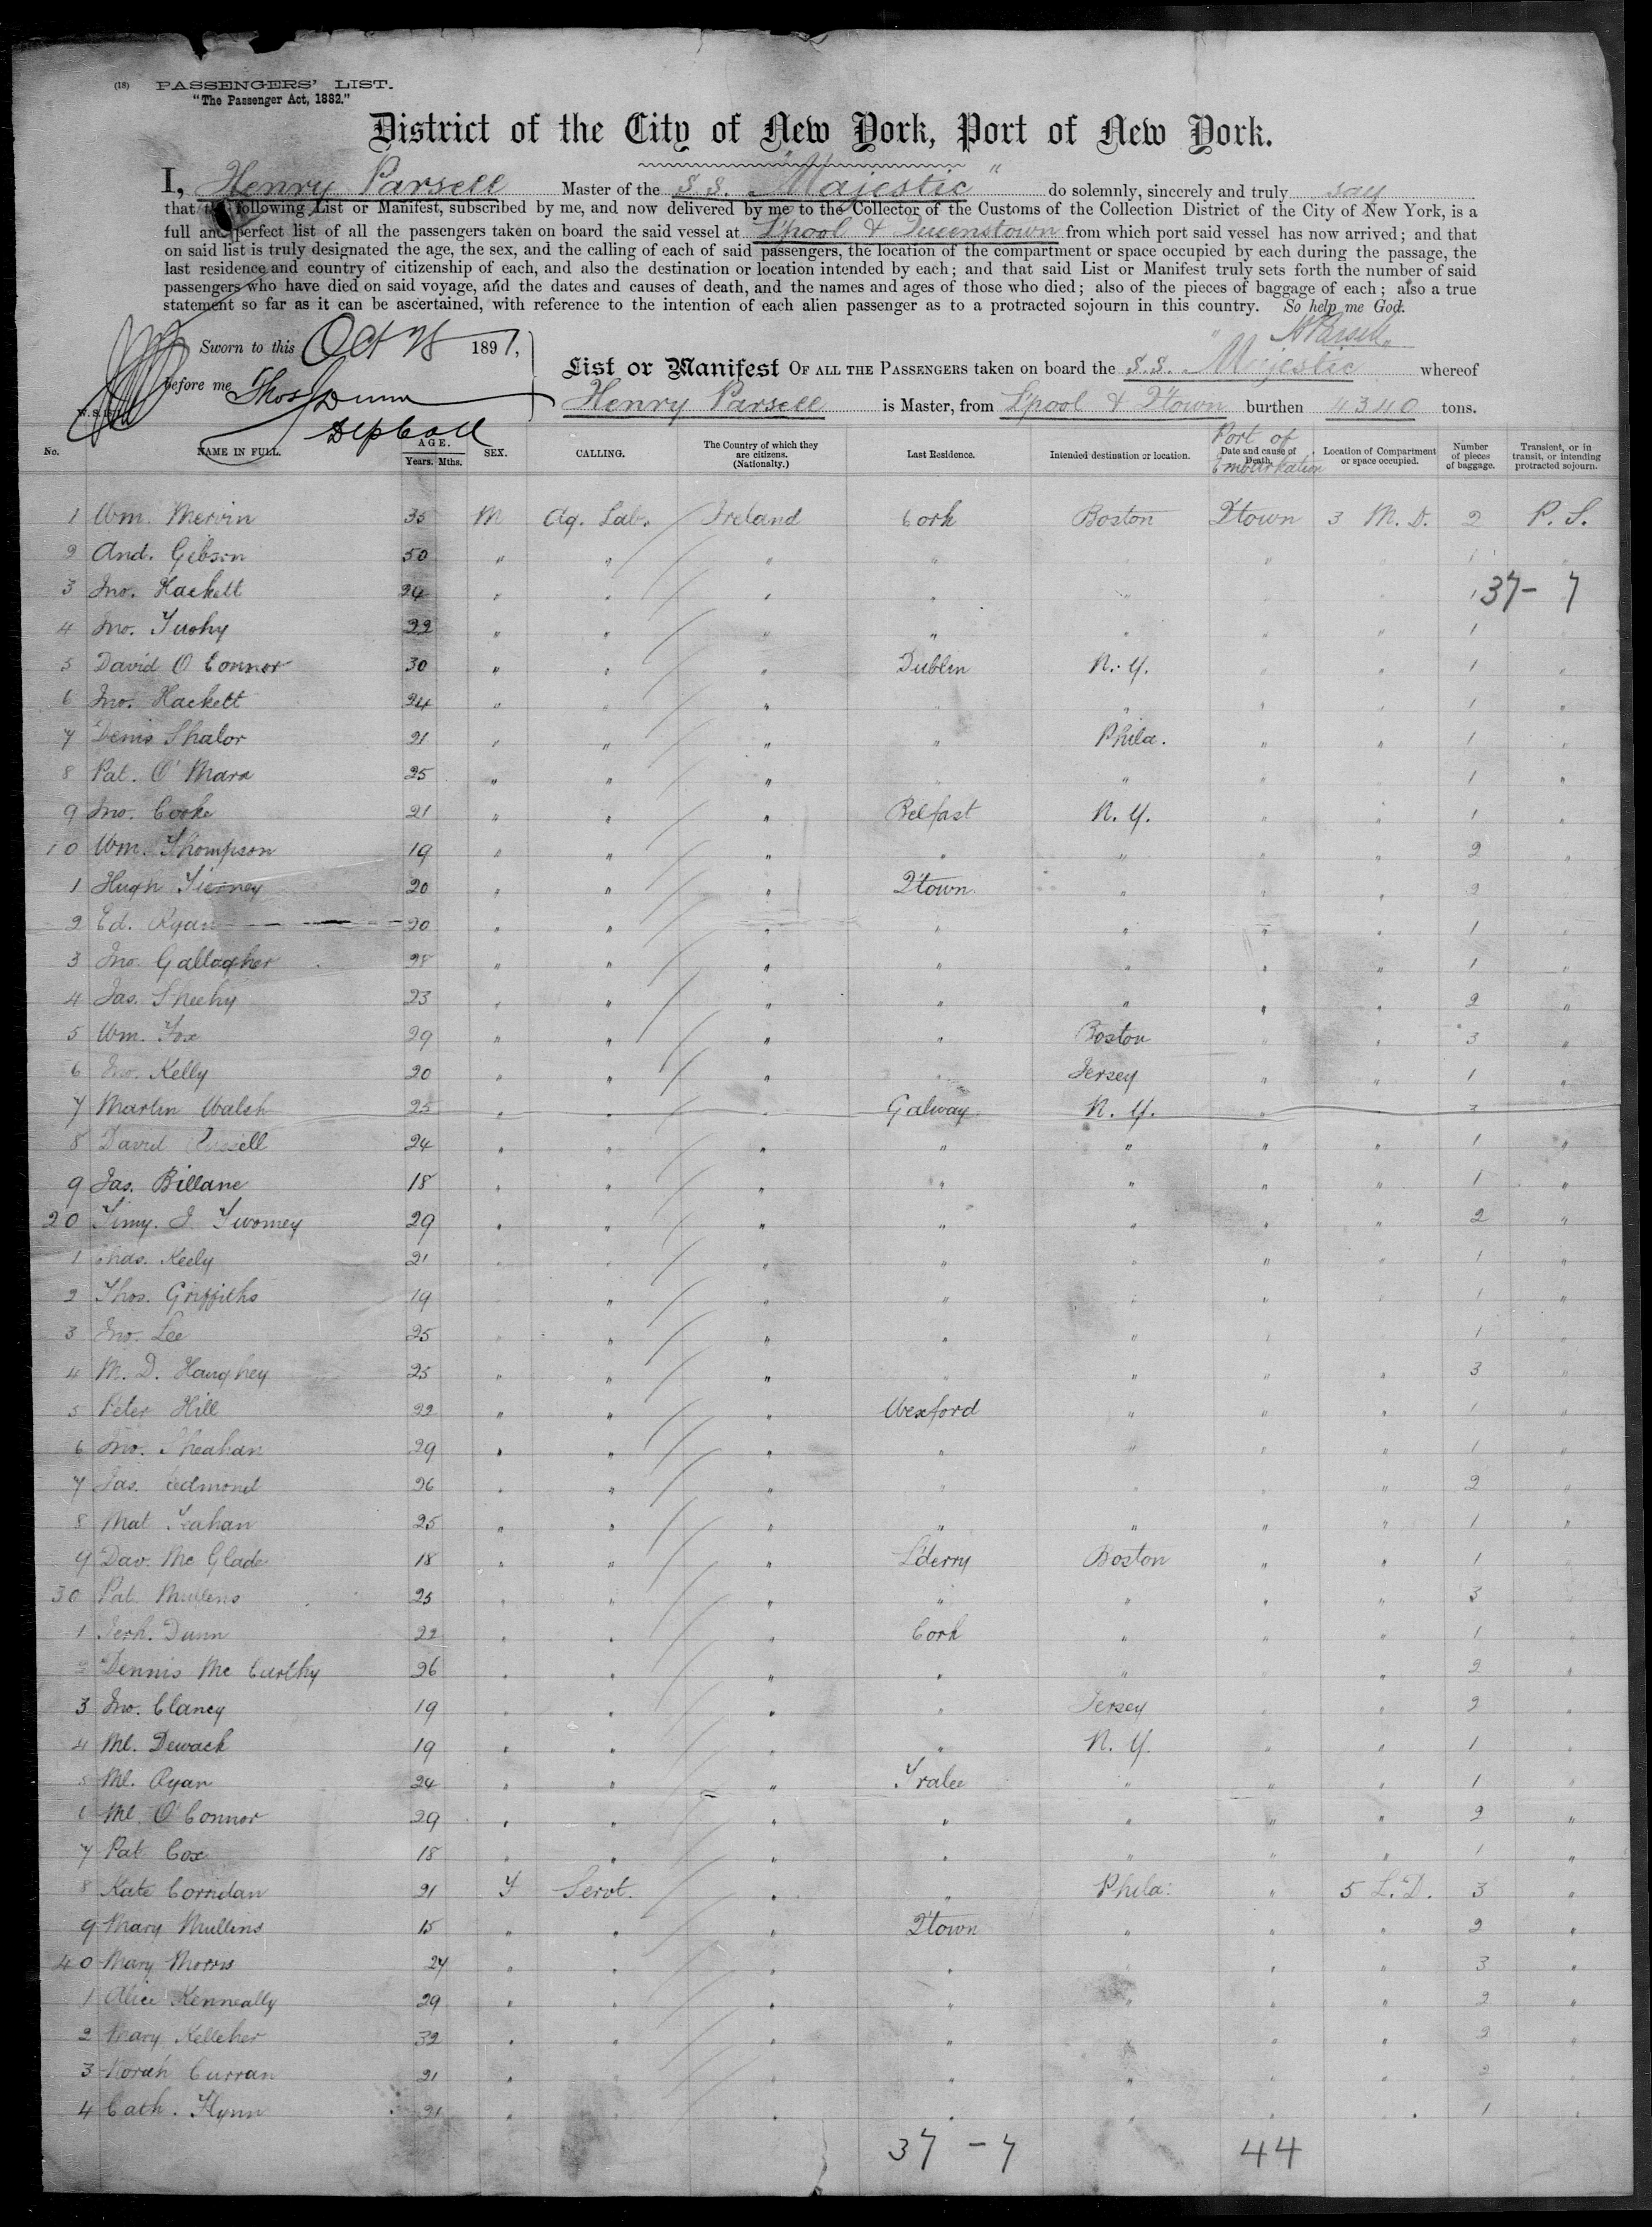 (18) PASSENGERS' LIST.
"The Passenger Act, 1882."
District of the City of New York, Port of New York.
I, Henry Parsell Master of the S.S. "Majestic" do solemnly, sincerely and truly say
that the following List or Manifest, subscribed by me, and now delivered by me to the Collector of the Customs of the Collection District of the City of New York, is a
full and perfect list of all the passengers taken on board the said vessel at L'pool & Queenstown from which port said vessel has now arrived; and that
on said list is truly designated the age, the sex, and the calling of each of said passengers, the location of the compartment or space occupied by each during the passage, the
last residence and country of citizenship of each, and also the destination or location intended by each; and that said List or Manifest truly sets forth the number of said
passengers who have died on said voyage, and the dates and causes of death, and the names and ages of those who died; also of the pieces of baggage of each; also a true
statement so far as it can be ascertained, with reference to the intention of each alien passenger as to a protracted sojourn in this country. So help me God.
H Parsell
Sworn to this Oct 1891,
before me Thos Dunn
Dep Coll
List or Manifest OF ALL THE PASSENGERS taken on board the S.S. "Majestic whereof
Henry Parsell is Master, from L'pool & Q'town burthen 4340 tons.
No. NAME IN FULL. AGE. Years. Mths. SEX. CALLING. The Country of which they are citizens. (Nationalty.) Last Residence. Intended destination or location. Port of Embarkation Date and cause of Death. Location of Compartment or space occupied. Number of pieces of baggage. Transient, or in transit, or intending protracted sojourn.
1 Wm. Mervin 35 M Ag. Lab. Ireland Cork Boston Q'town 3 M. D. 2 P. S.
2 And. Gibson 50 " " " " " " " 1 "
3 Jno. Hackett 24 " " " " " " " 1 37-7
4 Jno. Tuohy 22 " " " " " " " 1 "
5 David O'Connor 30 " " " Dublin N.Y. " " 1 "
6 Jno. Hackett 24 " " " " " " " 1 "
7 Denis Shalor 21 " " " " Phila. " " 1 "
8 Pat. O'Mara 25 " " " " " " " 1 "
9 Jno. Cooke 21 " " " Belfast N.Y. " " 1 "
10 Wm. Thompson 19 " " " " " " " 2 "
1 Hugh Tierney 20 " " " Q'town " " " 2 "
2 Ed. Ryan 20 " " " " " " " 1 "
3 Jno. Gallagher 28 " " " " " " " 1 "
4 Jas. Sheehy 23 " " " " " " " 2 "
5 Wm. Fox 29 " " " " Boston " " 3 "
6 Jno. Kelly 20 " " " " Jersey " " 1 "
7 Martin Walsh 25 " " " Galway N.Y. " " 3 "
8 David Russell 24 " " " " " " " 1 "
9 Jas. Billane 18 " " " " " " " 1 "
20 Timy. J. Twomey 29 " " " " " " " 2 "
1 Chas. Keely 21 " " " " " " " 1 "
2 Thos. Griffiths 19 " " " " " " " 1 "
3 Jno. Lee 25 " " " " " " " 1 "
4 M. D. Haughey 25 " " " " " " " 3 "
5 Peter Hill 22 " " " Wexford " " " 1 "
6 Jno. Sheahan 29 " " " " " " " 1 "
7 Jas. Redmond 26 " " " " " " " 2 "
8 Mat Feahan 25 " " " " " " " 1 "
9 Dav. Mc Glade 18 " " " L'derry Boston " " 1 "
30 Pat. Mullens 25 " " " " " " " 3 "
1 Jerh. Dunn 22 " " " Cork " " " 1 "
2 Dennis Mc Carthy 26 " " " " " " " 2 "
3 Jno. Clancy 19 " " " " Jersey " " 2 "
4 Ml. Dewack 19 " " " " N.Y. " " 1 "
5 Ml. Ryan 24 " " " Tralee " " " 1 "
6 Ml. O'Connor 29 " " " " " " " 2 "
7 Pat Cox 18 " " " " " " " 1 "
8 Kate Corridan 21 F Servt. " " Phila. " 5 L.D. 3 "
9 Mary Mullins 15 " " " Q'town " " " 2 "
40 Mary Morris 27 " " " " " " " 3 "
1 Alice Kenneally 29 " " " " " " " 2 "
2 Mary Kelleher 32 " " " " " " " 2 "
3 Norah Curran 21 " " " " " " " 2 "
4 Cath. Flynn 21 " " " " " " " 1 "
37 - 7 44